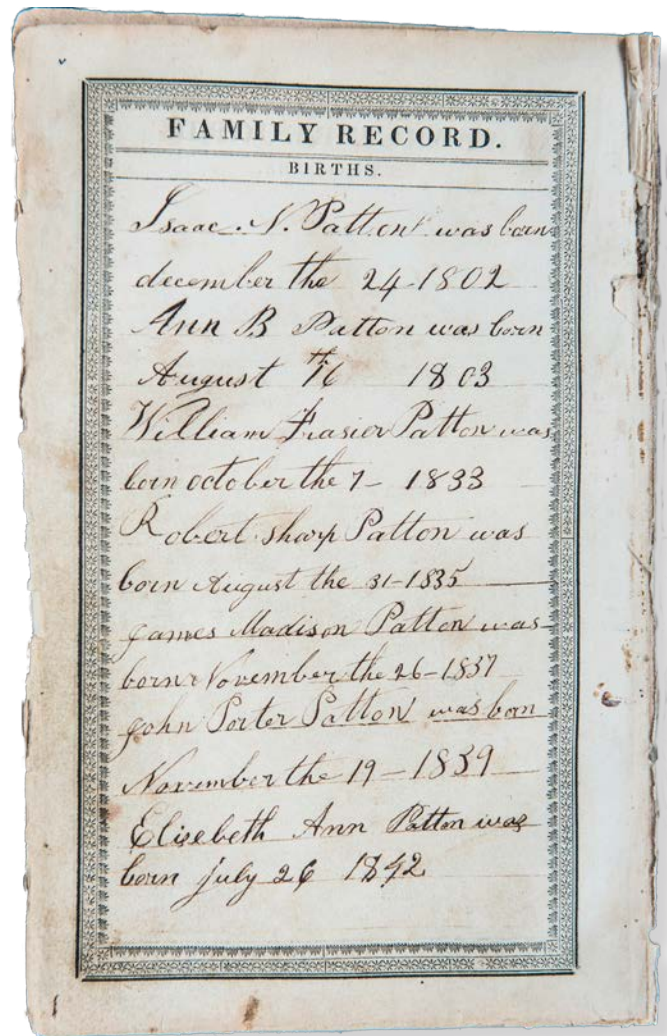 FAMILY RECORD.
BIRTHS.
Isaac. N. Patton was born
december the 24-1802
Ann B Patton was born
August 16th 1803
William Frasier Patton was
born october the 7- 1833
Robert sharp Patton was
born August the 31-1835
James Madison Patton was
born November the 26-1837
John Porter Patton was born
November the 19-1839
Elisebeth Ann Patton was
born july 26 1842